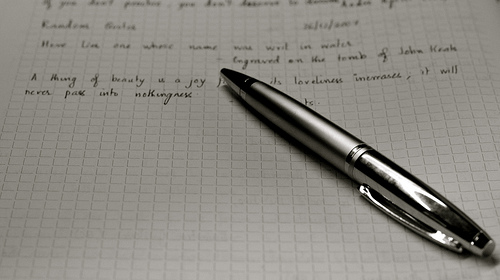 If you don't practise, you don't deserve to
Random Quotes 26/12/2008
Here lies one whose name was writ in water
- Engraved on the tomb of John Keats
A thing of beauty is a joy its loveliness increases, it will
never pass into nothingness
ts.